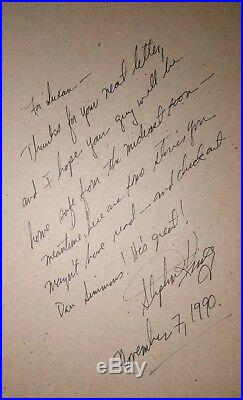 For Susan —
Thanks for your neat letter,
and I hope your guy will be
home safe from the mideast soon —
meantime, here are some stories you
mayn't have read — and check out
Dan Simmons! He's great!
Stephen King
November 7, 1990.
eBay